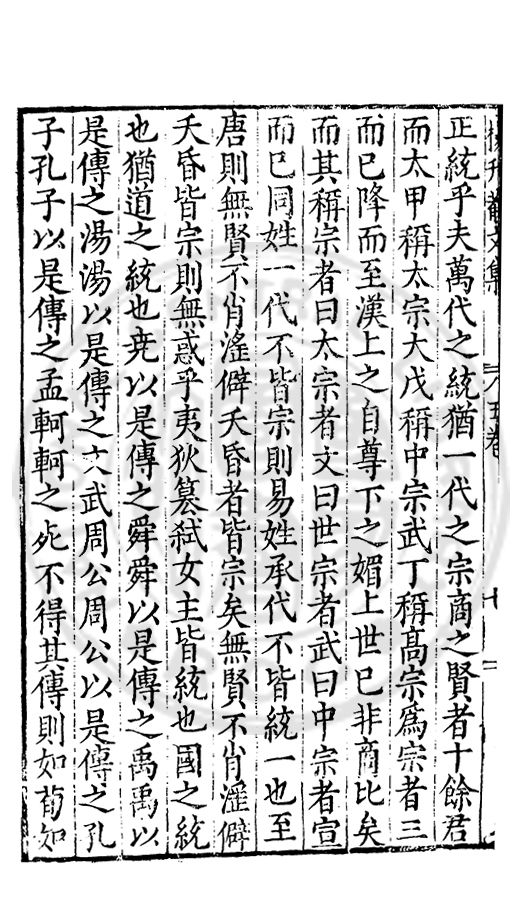 文集 五卷
正統乎夫萬代之統猶一代之宗商之賢者十餘君
而太甲稱太宗大戊稱中宗武丁稱髙宗爲宗者三
而已降而至漢上之自尊下之媚上世已非商比矣
而其稱宗者曰太宗者文曰世宗者武曰中宗者宣
而已同姓一代不皆宗則易姓承代不皆統一也至
唐則無賢不肖滛僻夭昏者皆宗矣無賢不肖滛僻
夭昏皆宗則無惑乎夷狄簒弑女主皆統也國之統
也猶道之統也尭以是傳之舜舜以是傳之禹禹以
是傳之湯湯以是傳之文武周公周公以是傳之孔
子孔子以是傳之孟軻軻之死不得其傳則如荀如